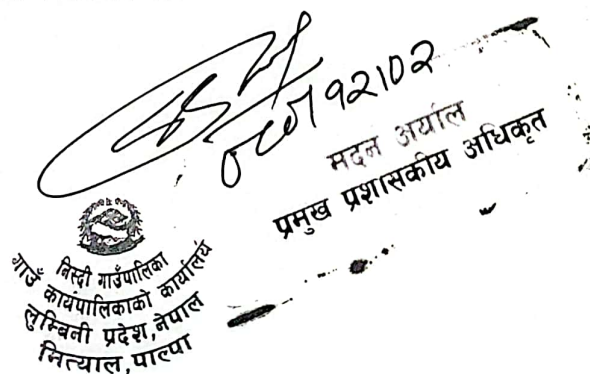 मदन अर्याल
प्रमुख प्रशासकीय अधिकृत
निस्दी गाउँपालिका
गाउँ कार्यपालिकाको कार्यालय
लुम्बिनी प्रदेश, नेपाल
मित्याल, पाल्पा